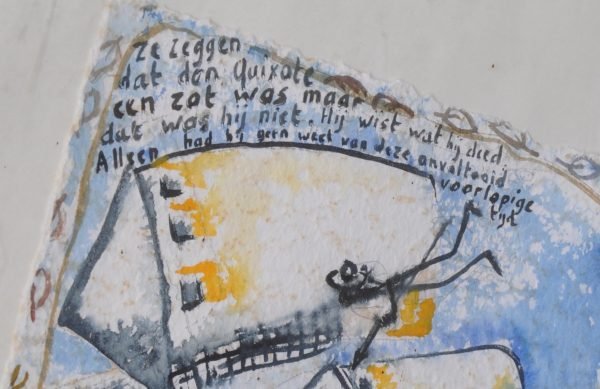 ze zeggen
dat don Quixote
een zot was maar
dat was hij niet. Hij wist wat hij deed
Alleen had hij geen weet van deze onvoltooid
voorlopige
tijd